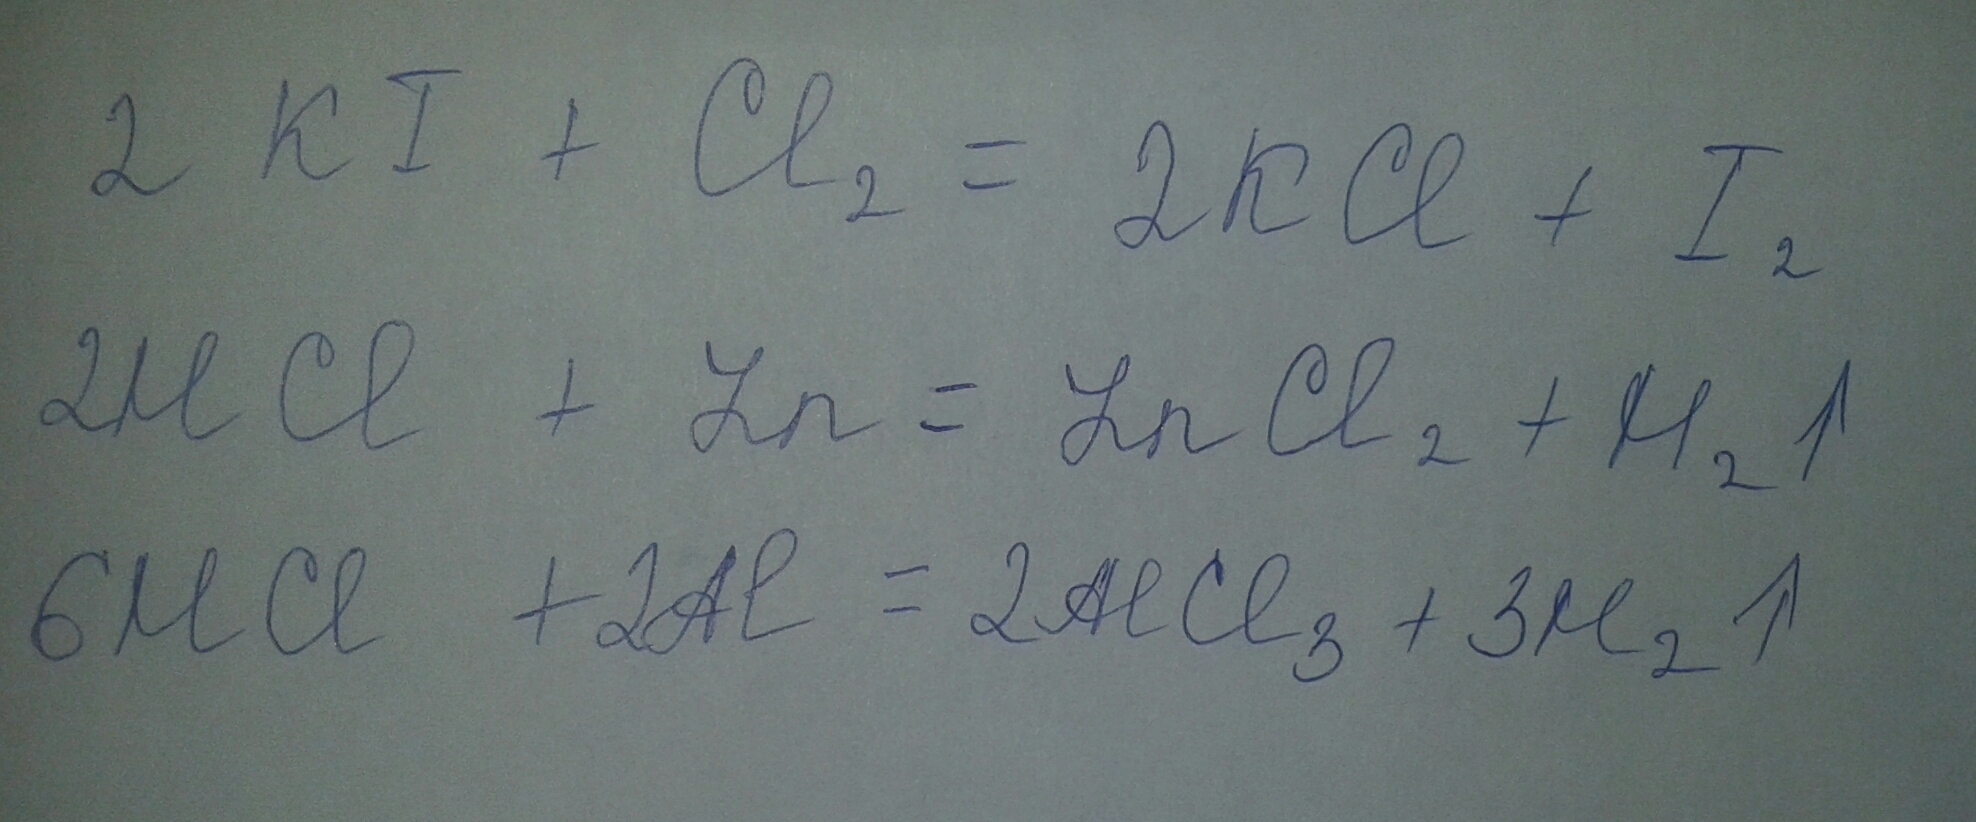 2 KI + Cl₂ = 2KCl + I₂
2HCl + Zn = ZnCl₂ + H₂↑
6HCl + 2Al = 2AlCl₃ + 3H₂↑